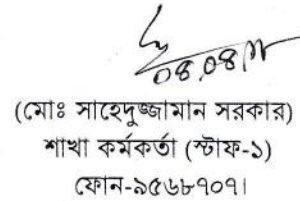 ০৪.০৪.১১
(মোঃ সাহেদুজ্জামান সরকার)
শাখা কর্মকর্তা (স্টাফ-১)
ফোন-৯৫৬৮৭০৭।